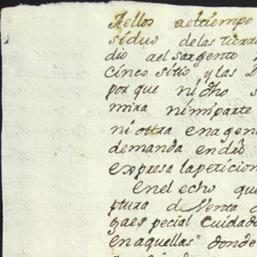 aellos aeltiempo
siduo delas tierra
dio ael sargento
cinco sitio y las
por que nidho s
mira nimiparte
ni otra enagen
demanda endro
expresa lapeticion
Enel echo que
ptura de Venta
gaes pecial cuidado
en aquellas donde